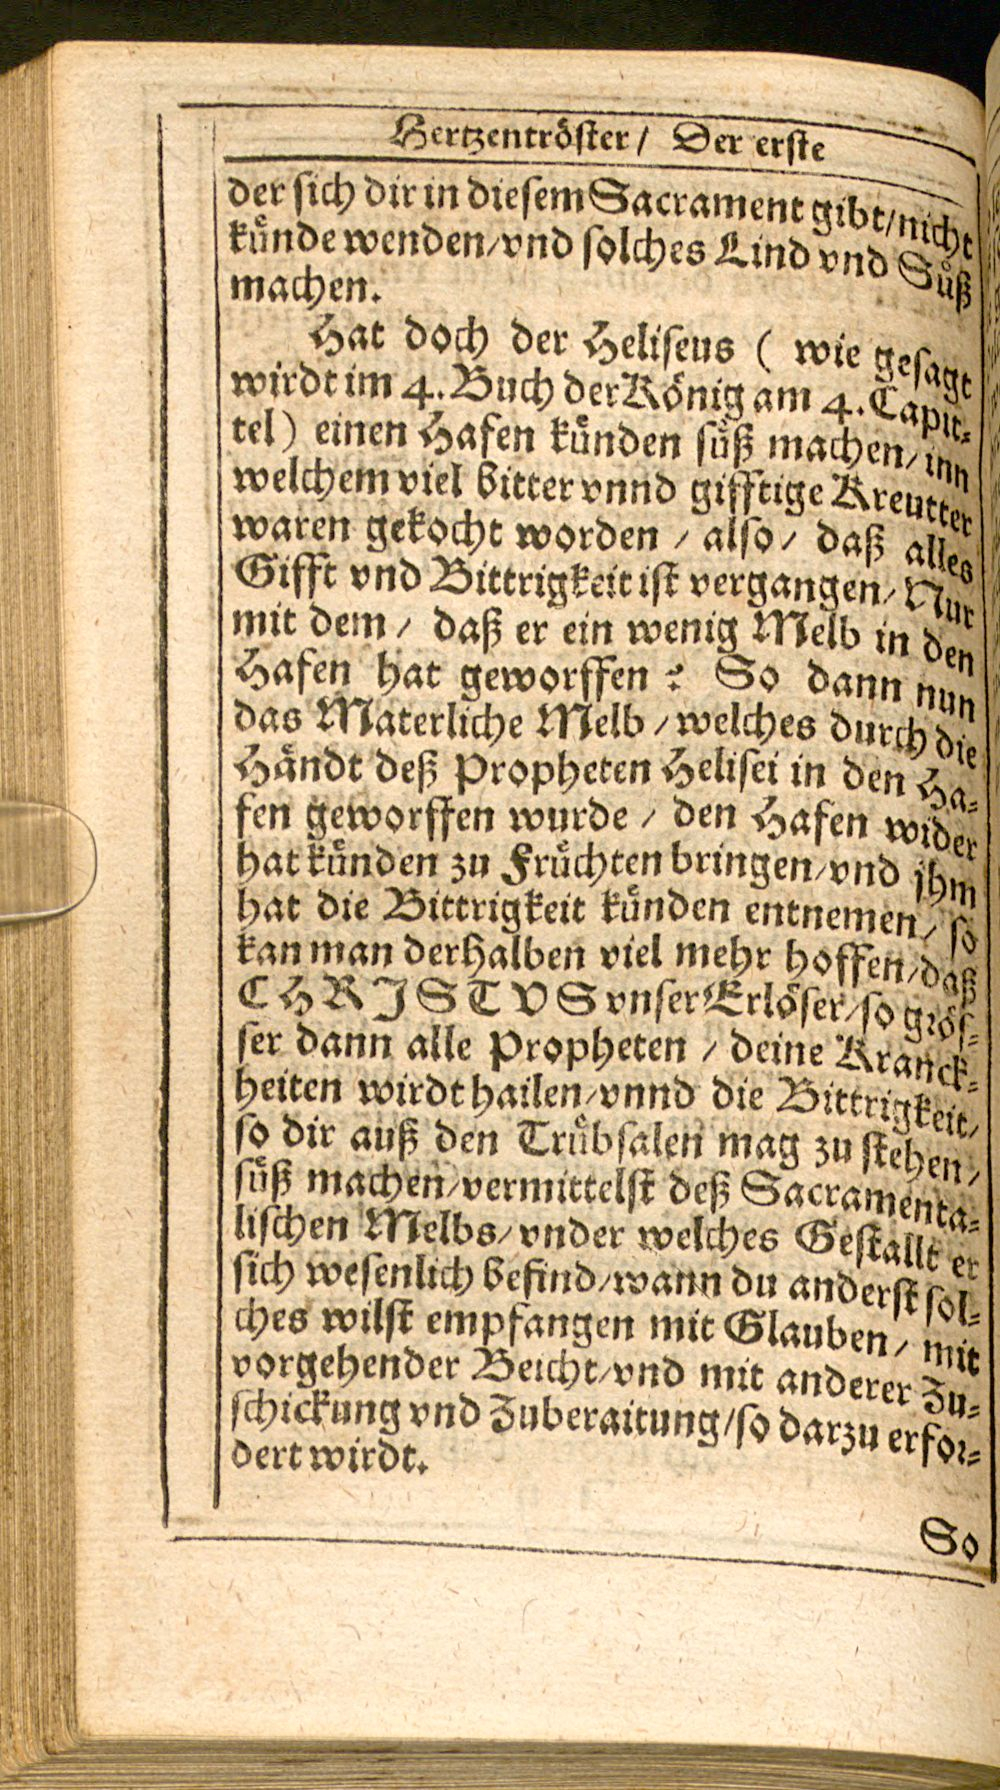 Hertzentröster / Der erste
der sich dir in diesem Sacrament gibt / nicht
künde wenden / vnd solches Lind vnd Süß
machen.
Hat doch der Heliseus ( wie gesagt
wirdt im 4. Buch der König am 4. Capit⸗
tel ) einen Hafen künden süß machen / inn
welchem viel bitter vnnd gifftige Kreutter
waren gekocht worden / also / daß alles
Gifft vnd Bittrigkeit ist vergangen / Nur
mit dem / daß er ein wenig Melb in den
Hafen hat geworffen ? So dann nun
das Materliche Melb / welches durch die
Händt deß Propheten Helisei in den Ha⸗
fen geworffen wurde / den Hafen wider
hat künden zu Früchten bringen / vnd jhm
hat die Bittrigkeit künden entnemen / so
kan man derhalben viel mehr hoffen / daß
CHRJSTVS vnser Erlöser / so grös⸗
ser dann alle Propheten / deine Kranck⸗
heiten wirdt hailen / vnnd die Bittrigkeit /
so dir auß den Trübsalen mag zu stehen /
süß machen / vermittelst deß Sacramenta⸗
lischen Melbs / vnder welches Gestallt er
sich wesenlich befind / wann du anderst sol⸗
ches wilst empfangen mit Glauben / mit
vorgehender Beicht / vnd mit anderer Zu⸗
schickung vnd Zuberaitung / so darzu erfor⸗
dert wirdt.
So